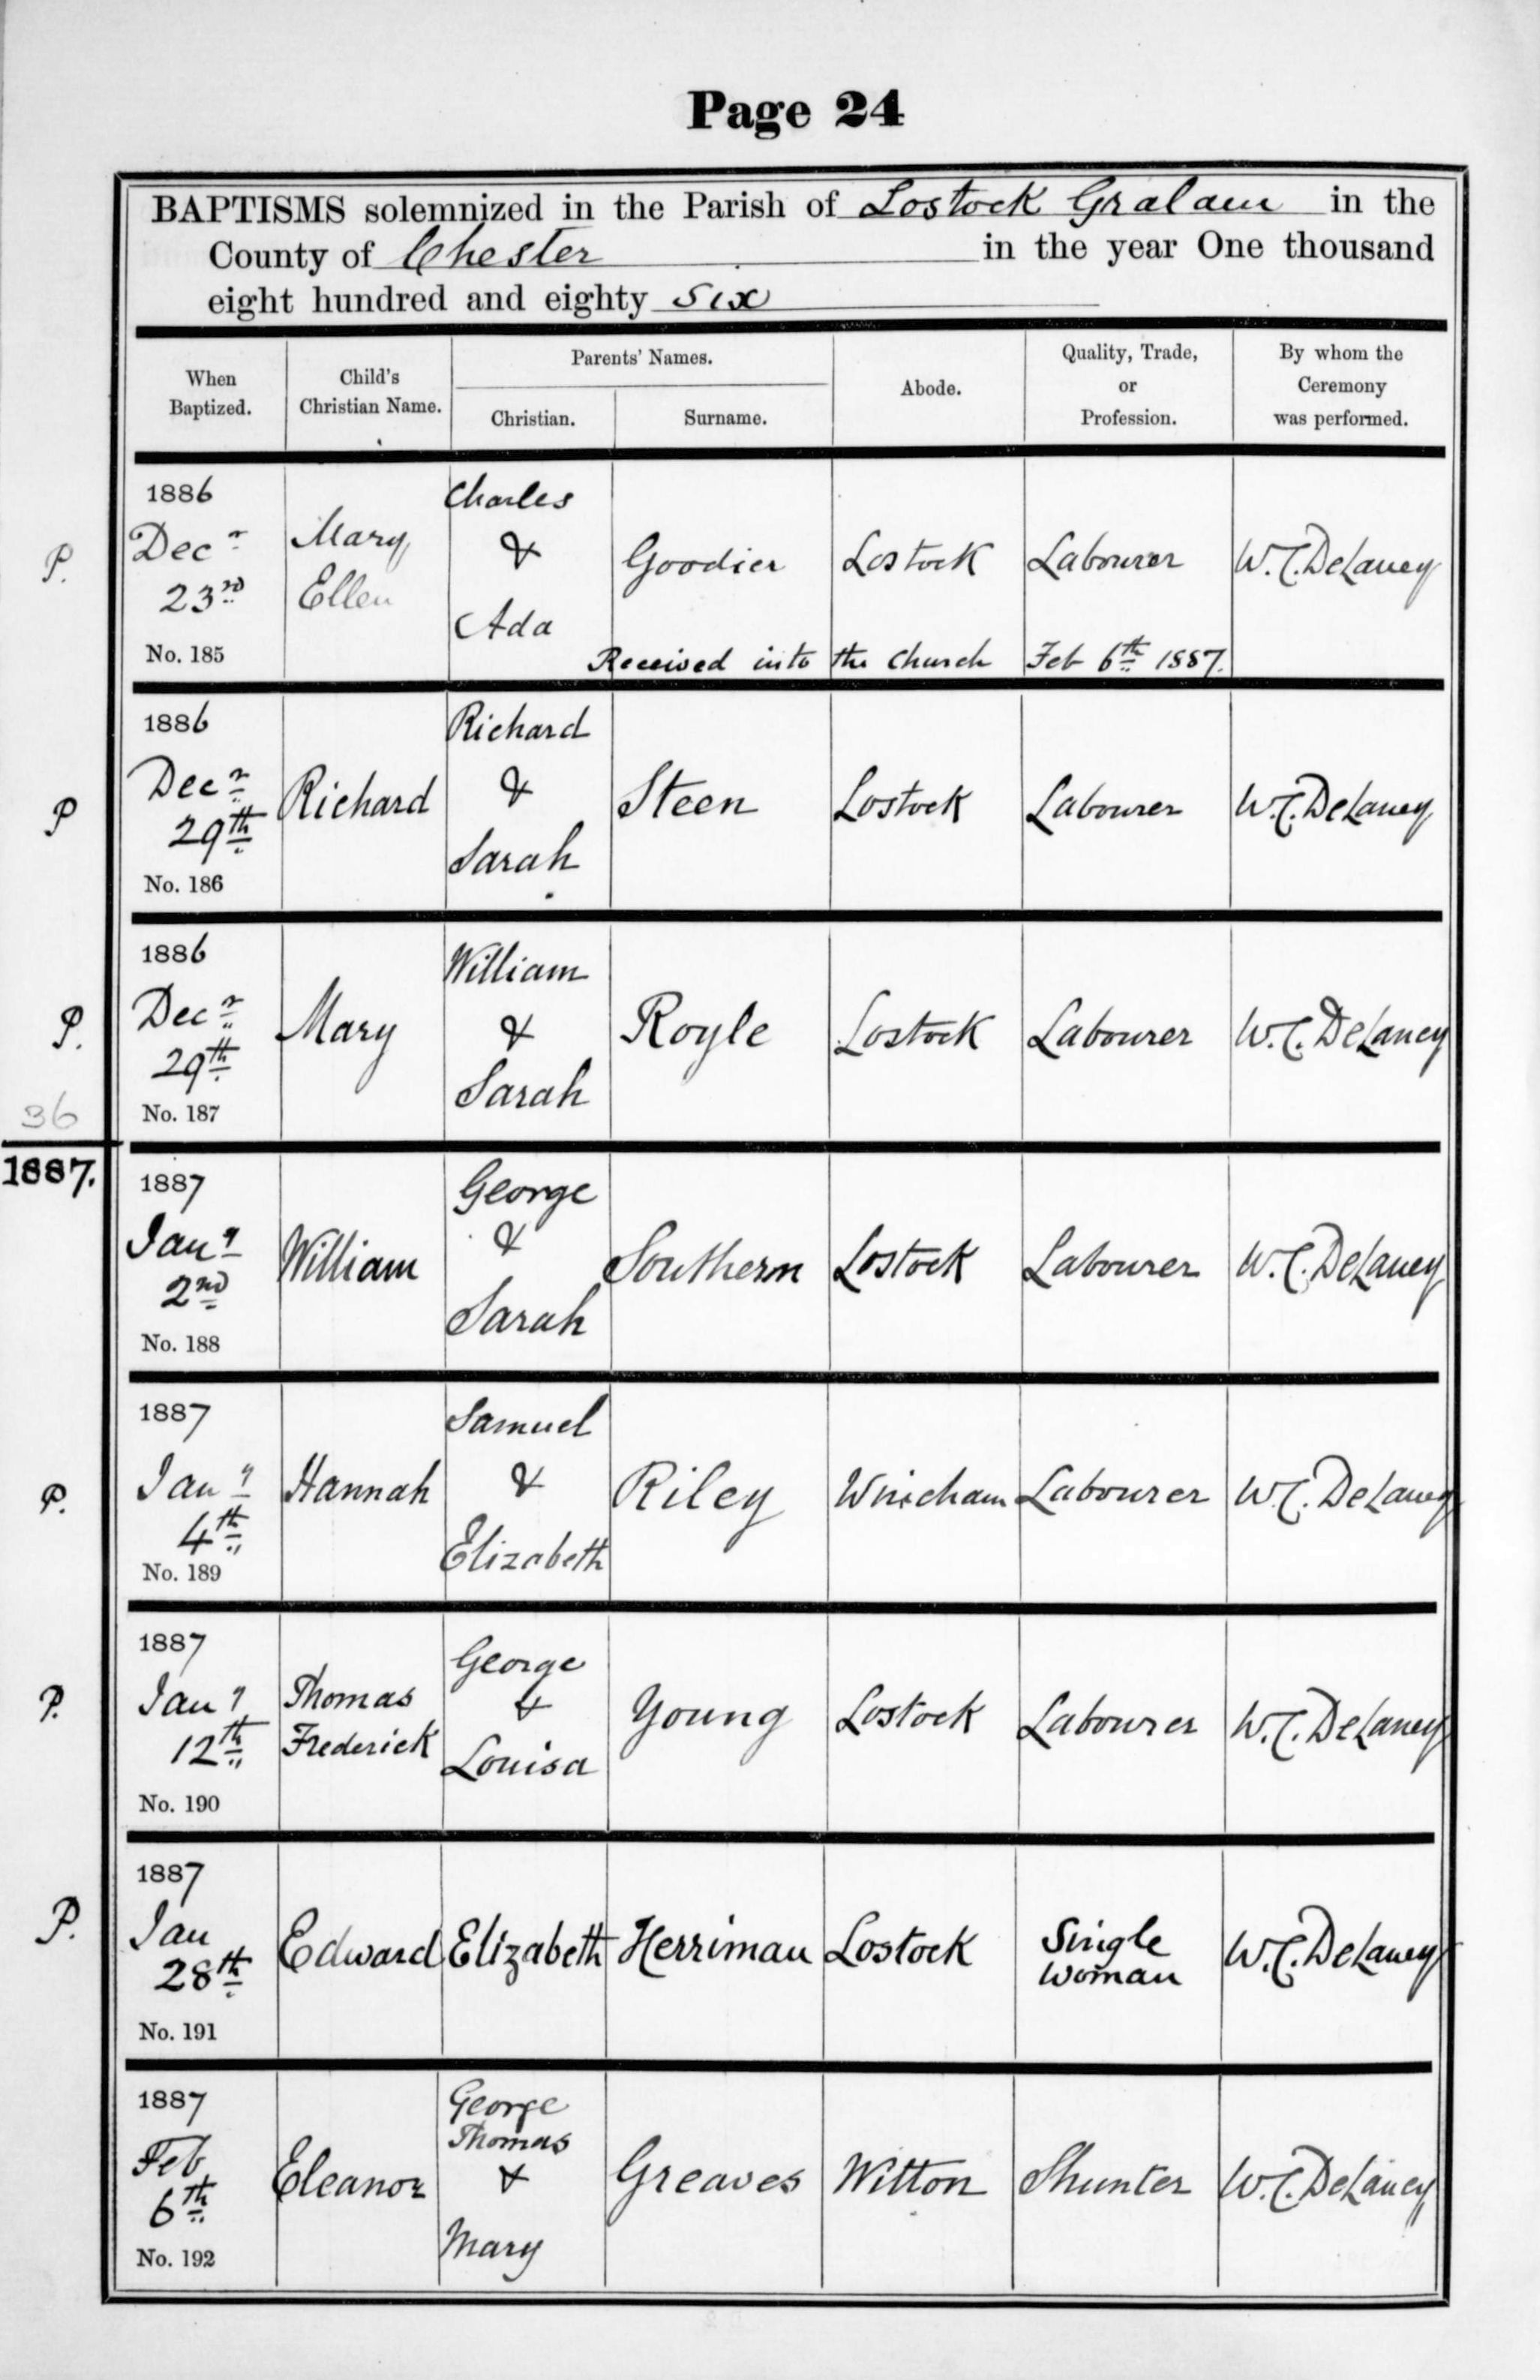 Page 24
BAPTISMS solemnized in the Parish of Lostock Gralam in the
County of Chester in the year One thousand
eight hundred and eighty six
When Baptized.
Child's Christian Name.
Parents' Names.
Christian.
Surname.
Abode.
Quality, Trade, or Profession.
By whom the Ceremony was performed.
P.
1886
Decr
23rd
No. 185
Mary
Ellen
Charles
&
Ada
Goodier
Lostock
Labourer
W. C. DeLaney
Received into the Church Feb 6th 1887.
P
1886
Decr
29th
No. 186
Richard
Richard
&
Sarah
Steen
Lostock
Labourer
W. C. DeLaney
P.
1886
Decr
29th
No. 187
Mary
William
&
Sarah
Royle
Lostock
Labourer
W. C. DeLaney
36
1887.
1887
Jany
2nd
No. 188
William
George
&
Sarah
Southern
Lostock
Labourer
W. C. DeLaney
P.
1887
Jany
4th
No. 189
Hannah
Samuel
&
Elizabeth
Riley
Wincham
Labourer
W. C. DeLaney
P.
1887
Jany
12th
No. 190
Thomas
Frederick
George
&
Louisa
Young
Lostock
Labourer
W. C. DeLaney
P.
1887
Jan
28th
No. 191
Edward
Elizabeth
Herriman
Lostock
Single
Woman
W. C. DeLaney
1887
Feb
6th
No. 192
Eleanor
George
Thomas
&
Mary
Greaves
Witton
Shunter
W. C. DeLaney